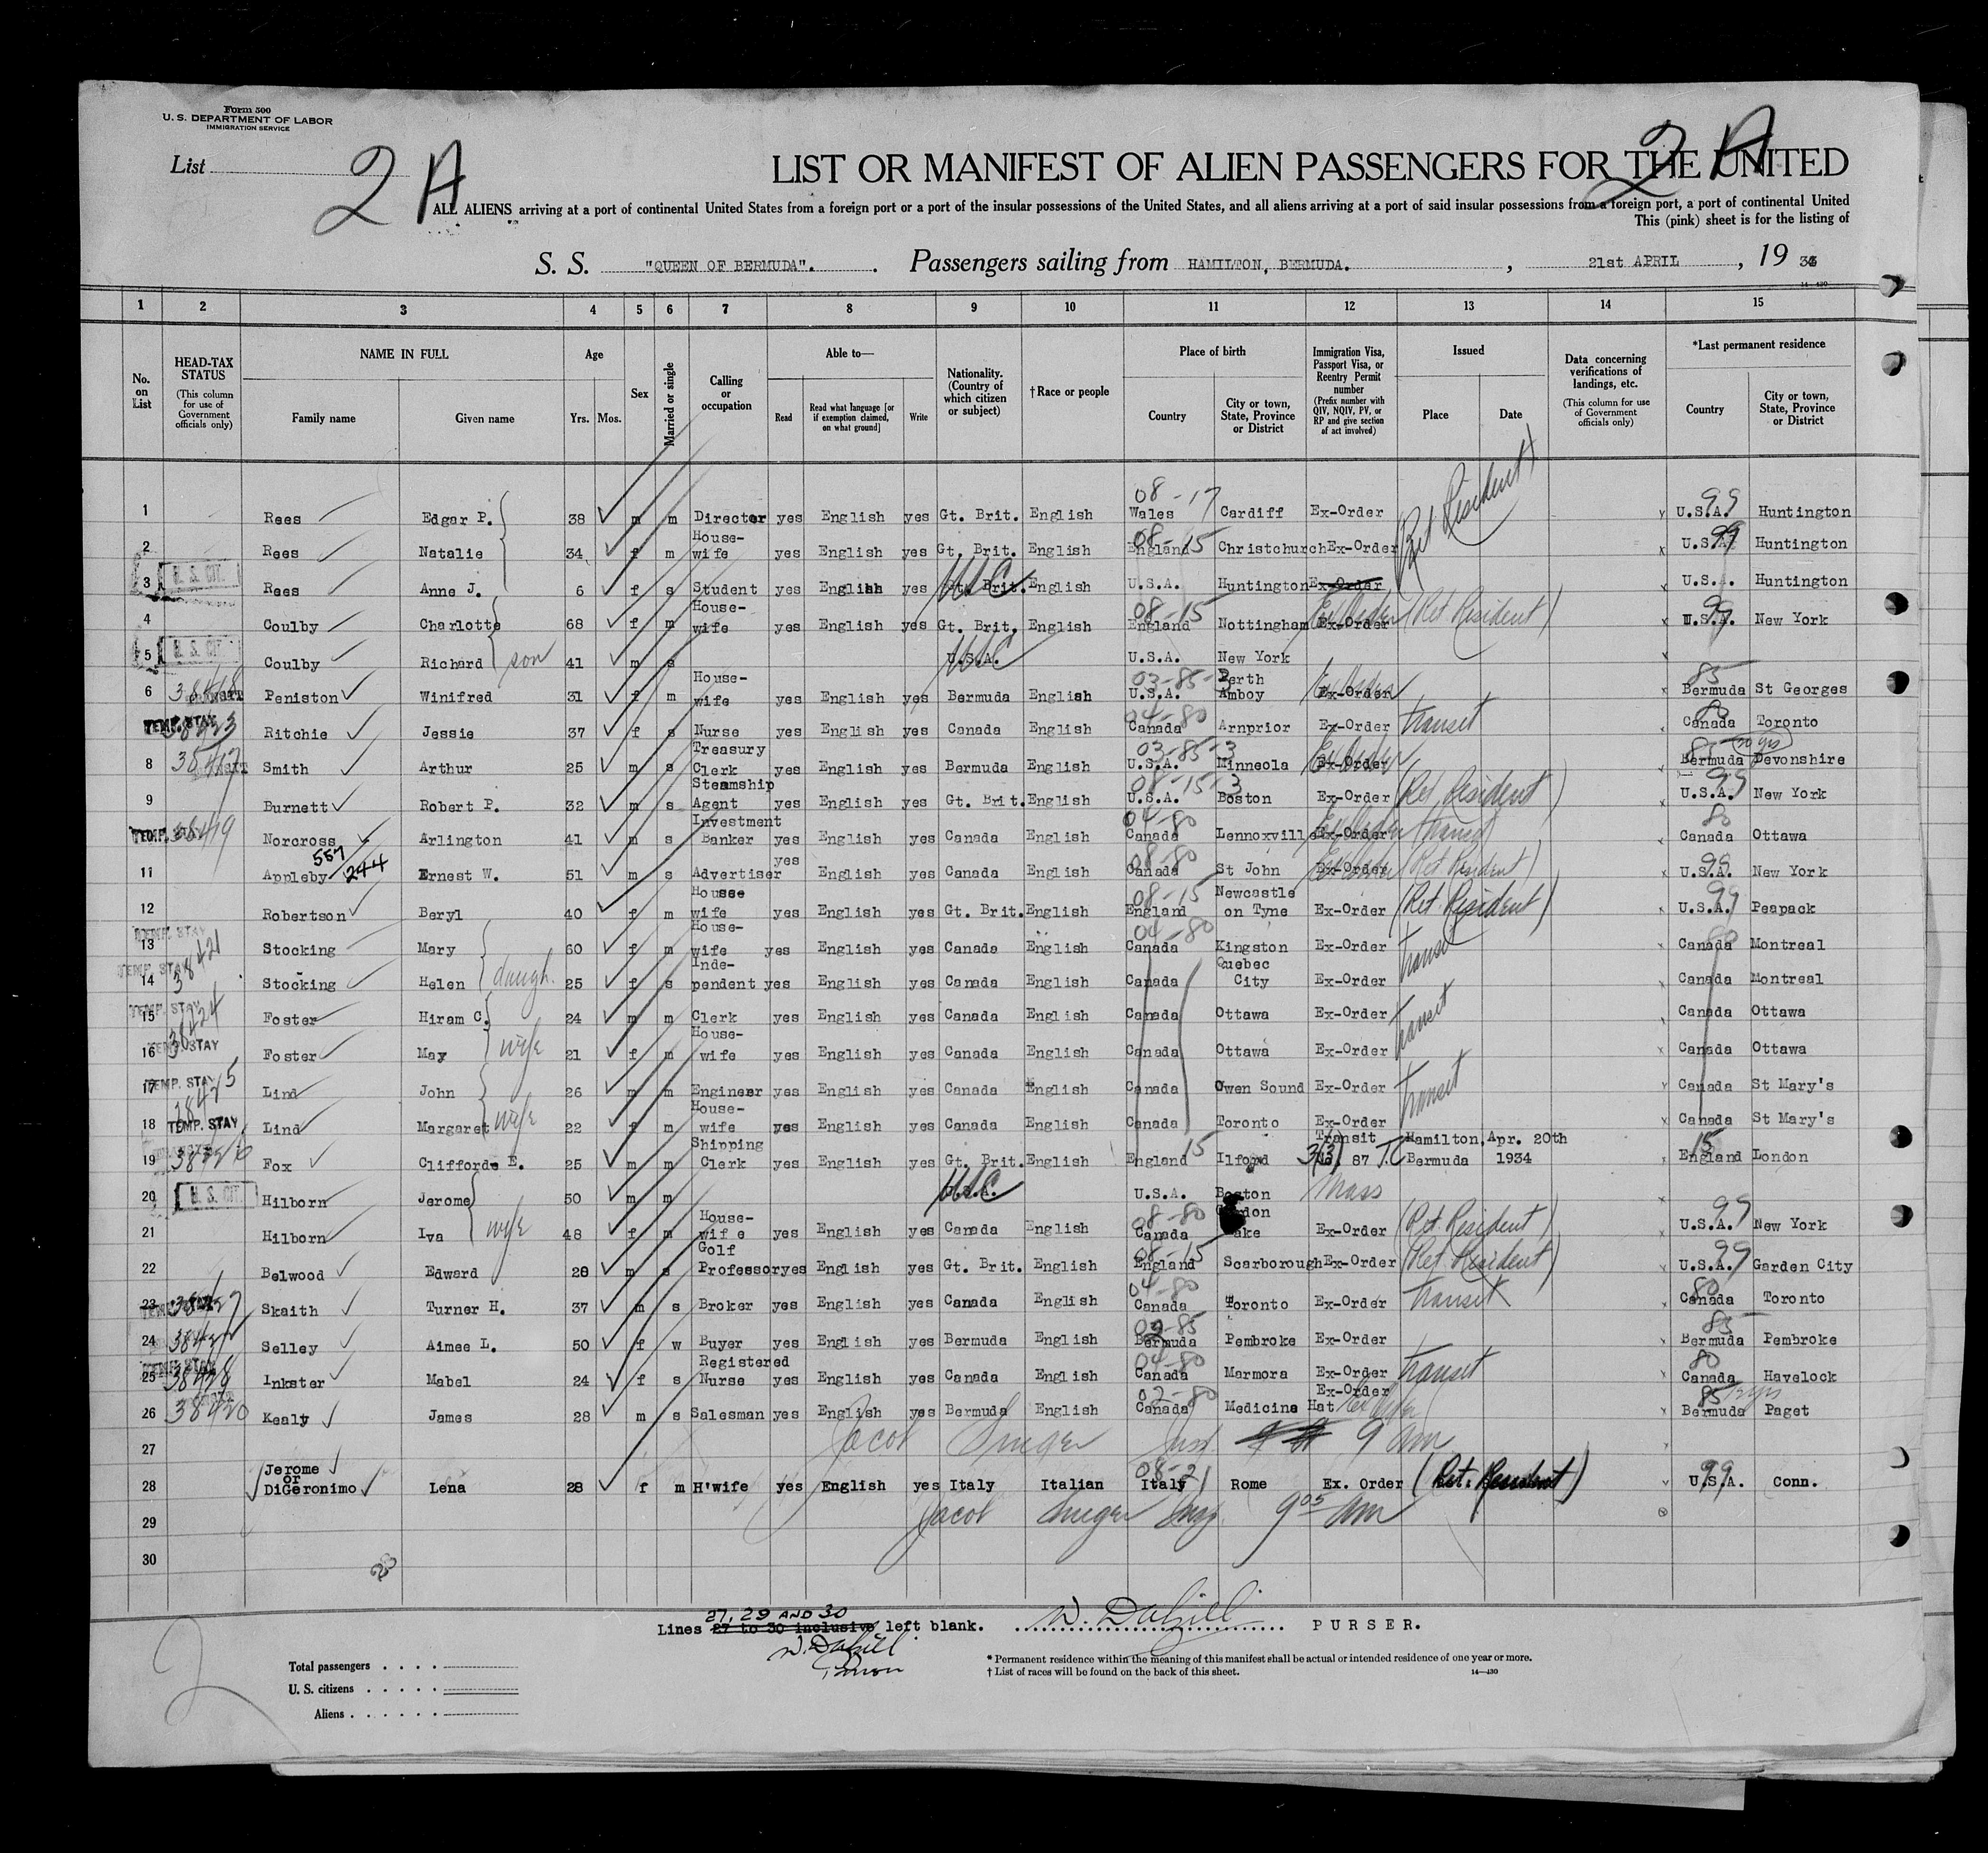 Form 500
U. S. DEPARTMENT OF LABOR
IMMIGRATION SERVICE
List 2 A
2 A
LIST OR MANIFEST OF ALIEN PASSENGERS FOR THE UNITED
ALL ALIENS arriving at a port of continental United States from a foreign port or a port of the insular possessions of the United States, and all aliens arriving at a port of said insular possessions from a foreign port, a port of continental United
This (pink) sheet is for the listing of
S. S. "QUEEN OF BERMUDA". Passengers sailing from HAMILTON, BERMUDA. , 21st APRIL , 19 34
14—430
1 2 3 4 5 6 7 8 9 10 11 12 13 14 15
No. on List
HEAD-TAX STATUS (This column for use of Government officials only)
NAME IN FULL Family name Given name
Age Yrs. Mos.
Sex
Married or single
Calling or occupation
Able to— Read Read what language [or if exemption claimed, on what ground] Write
Nationality. (Country of which citizen or subject)
†Race or people
Place of birth Country City or town, State, Province or District
Immigration Visa, Passport Visa, or Reentry Permit number (Prefix number with QIV, NQIV, PV, or RP and give section of act involved)
Issued Place Date
Data concerning verifications of landings, etc. (This column for use of Government officials only)
*Last permanent residence Country City or town, State, Province or District
1 Rees Edgar P. 38 m m Director yes English yes Gt. Brit. English 08-17 Wales Cardiff Ex-Order (Ret Resident) 99 U.S.A. Huntington
2 Rees Natalie 34 f m House-wife yes English yes Gt. Brit. English 08-15 England Christchurch Ex-Order 99 U.S.A. Huntington
3 U. S. CIT. Rees Anne J. 6 f s Student yes English yes Gt. Brit. USC English U.S.A. Huntington Ex-Order U.S.A. Huntington
4 Coulby Charlotte 68 f m House-wife yes English yes Gt. Brit. English 08-15 England Nottingham Ex-Order (Ret Resident) 99 U.S.A. New York
5 U. S. CIT. Coulby Richard son 41 m s U.S.A. USC U.S.A. New York
6 38418 Peniston Winifred 31 f m House-wife yes English yes Bermuda English 03-85-3 U.S.A. Perth Amboy Ex-Order 85 Bermuda St Georges
TEMP. STAY 38423 Ritchie Jessie 37 f s Nurse yes English yes Canada English 04-80 Canada Arnprior Ex-Order transit 80 Canada Toronto
8 38417 Smith Arthur 25 m s Treasury Clerk yes English yes Bermuda English 03-85-3 U.S.A. Minneola Ex-Order 85 (20 yrs) Bermuda Devonshire
9 Burnett Robert P. 32 m s Steamship Agent yes English yes Gt. Brit. English 08-15-3 U.S.A. Boston Ex-Order (Ret Resident) 99 U.S.A. New York
TEMP. 38419 Norcross Arlington 41 m s Investment Banker yes English yes Canada English 04-80 Canada Lennoxville Ex-Order transit 80 Canada Ottawa
11 Appleby 557/244 Ernest W. 51 m s Advertiser yes English yes Canada English 08-80 Canada St John Ex-Order (Ret Resident) 99 U.S.A. New York
12 Robertson Beryl 40 f m House wife yes English yes Gt. Brit. English 08-15 England Newcastle on Tyne Ex-Order (Ret Resident) 99 U.S.A. Peapack
13 TEMP. STAY 38421 Stocking Mary 60 f m House-wife yes English yes Canada English 04-80 Canada Kingston Ex-Order transit 80 Canada Montreal
14 TEMP. STAY Stocking Helen daugh. 25 f s Inde-pendent yes English yes Canada English Canada Quebec City Ex-Order Canada Montreal
15 TEMP. STAY 38424 Foster Hiram C. 24 m m Clerk yes English yes Canada English Canada Ottawa Ex-Order transit Canada Ottawa
16 STAY Foster May wife 21 f m House-wife yes English yes Canada English Canada Ottawa Ex-Order Canada Ottawa
17 TEMP. STAY 38425 Lind John 26 m m Engineer yes English yes Canada English Canada Owen Sound Ex-Order transit Canada St Mary's
18 TEMP. STAY Lind Margaret wife 22 f m House-wife yes English yes Canada English Canada Toronto Ex-Order Canada St Mary's
19 Fox Clifford E. 25 m m Shipping Clerk yes English yes Gt. Brit. English England 15 Ilford Transit 3(3) No. 87 T.C Hamilton, Bermuda Apr. 20th 1934 15 England London
20 U. S. CIT. Hilborn Jerome 50 m m U.S.A. USC U.S.A. Boston Mass
21 Hilborn Iva wife 48 f m House-wife yes English yes Canada English 08-80 Canada Ex-Order (Ret. Resident) 99 U.S.A. New York
22 Belwood Edward 28 m s Golf Professor yes English yes Gt. Brit. English 08-15 England Scarborough Ex-Order (Ret Resident) 99 U.S.A. Garden City
23 38427 Skaith Turner H. 37 m s Broker yes English yes Canada English 04-80 Canada Toronto Ex-Order transit 80 Canada Toronto
24 Selley Aimee L. 50 f w Buyer yes English yes Bermuda English 85 Bermuda Pembroke Ex-Order 85 Bermuda Pembroke
25 TEMP. STAY 38428 Inkster Mabel 24 f s Registered Nurse yes English yes Canada English 04-80 Canada Marmora Ex-Order transit 80 Canada Havelock
26 38420 Kealy James 28 m s Salesman yes English yes Bermuda English 02-80 Canada Medicine Hat Ex-Order 85 Bermuda Paget
27 Jacob 9 am
28 Jerome or DiGeronimo Lena 28 f m H'wife yes English yes Italy Italian 08-21 Italy Rome Ex. Order (Ret. Resident) 99 U.S.A. Conn.
29 Jacob Insp. 9 05 am
30
28
27, 29 AND 30
Lines 27 to 30 inclusive left blank. W. Dahill PURSER.
W. Dahill
2
Total passengers
U. S. citizens
Aliens
* Permanent residence within the meaning of this manifest shall be actual or intended residence of one year or more.
† List of races will be found on the back of this sheet.
14—430